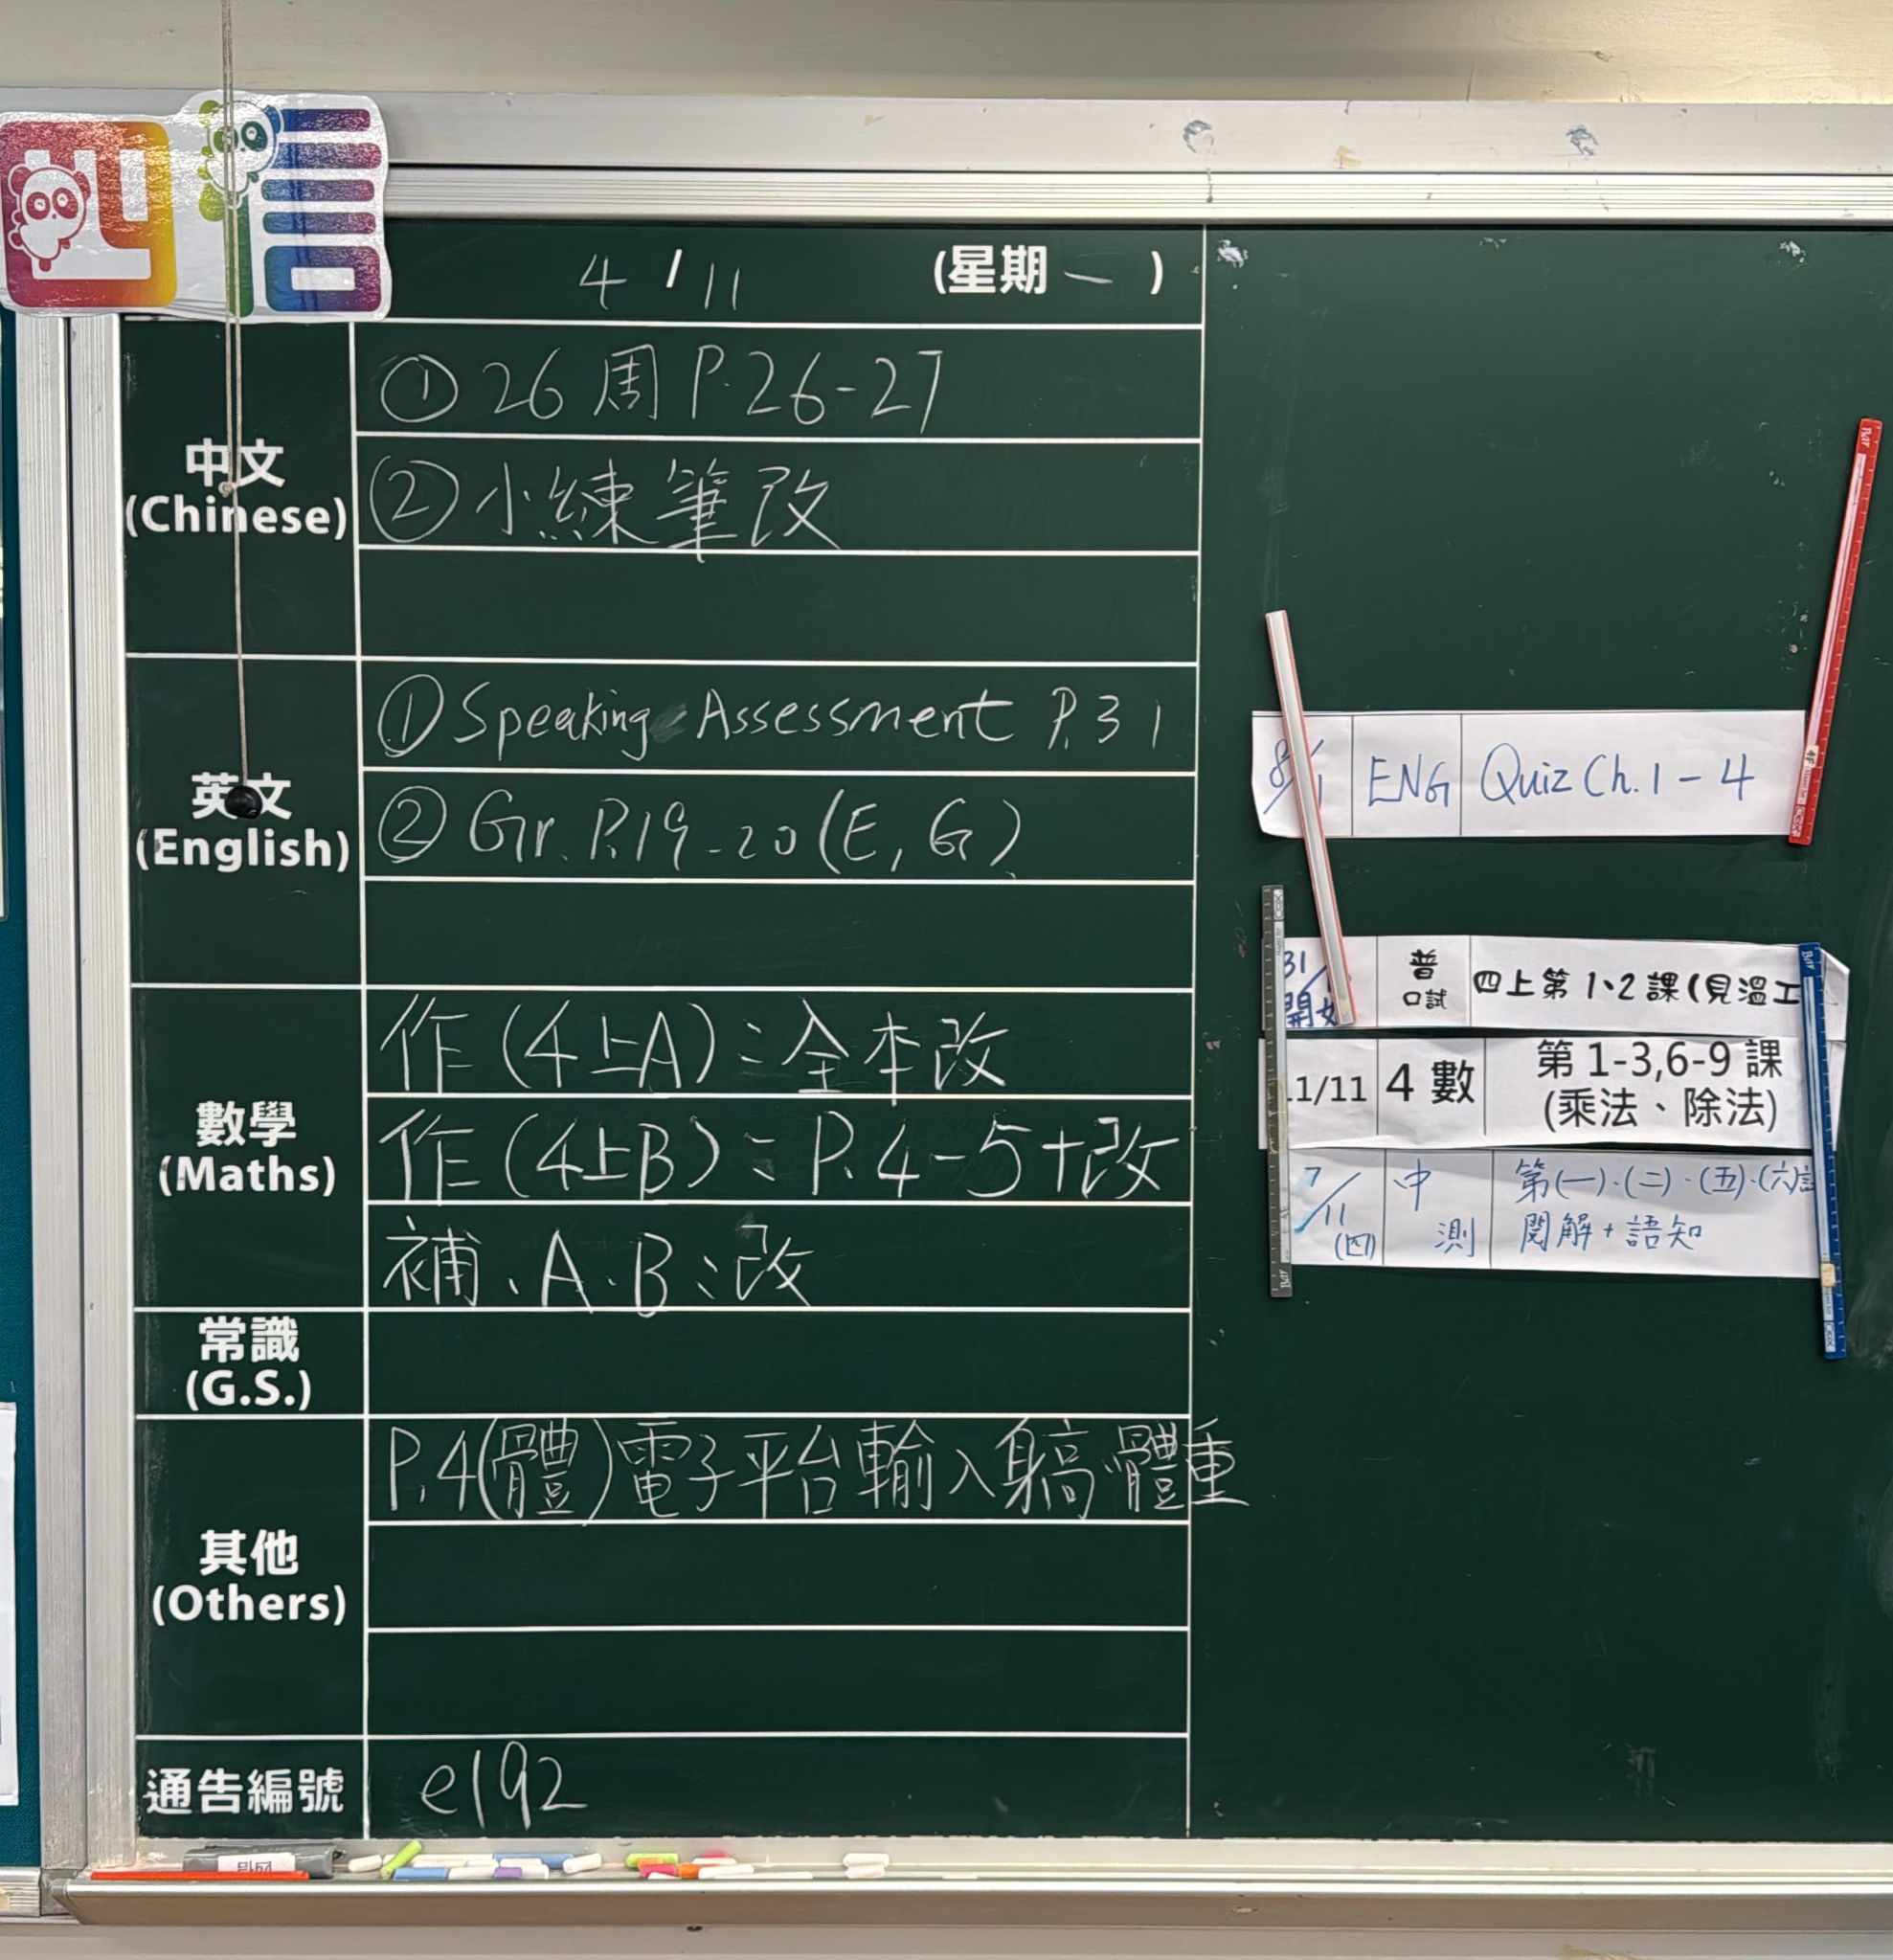 四信
4 / 11 (星期一)
中文
(Chinese)
① 26周 P.26-27
② 小練筆改
英文
(English)
① Speaking Assessment P.31
② Gr. P.19-20 (E, G)
數學
(Maths)
作(4上A):全本改
作(4上B):P.4-5+改
補、A、B:改
常識
(G.S.)
其他
(Others)
P.4(體)電子平台輸入身高、體重
通告編號
e192
ENG Quiz Ch.1-4
31/
普
口試
四上第1、2課(見溫工
11/11 4數 第1-3,6-9課
(乘法、除法)
7/11
(四)
中
測
第(一)、(二)、(五)、(六)
閱解+語知
四信